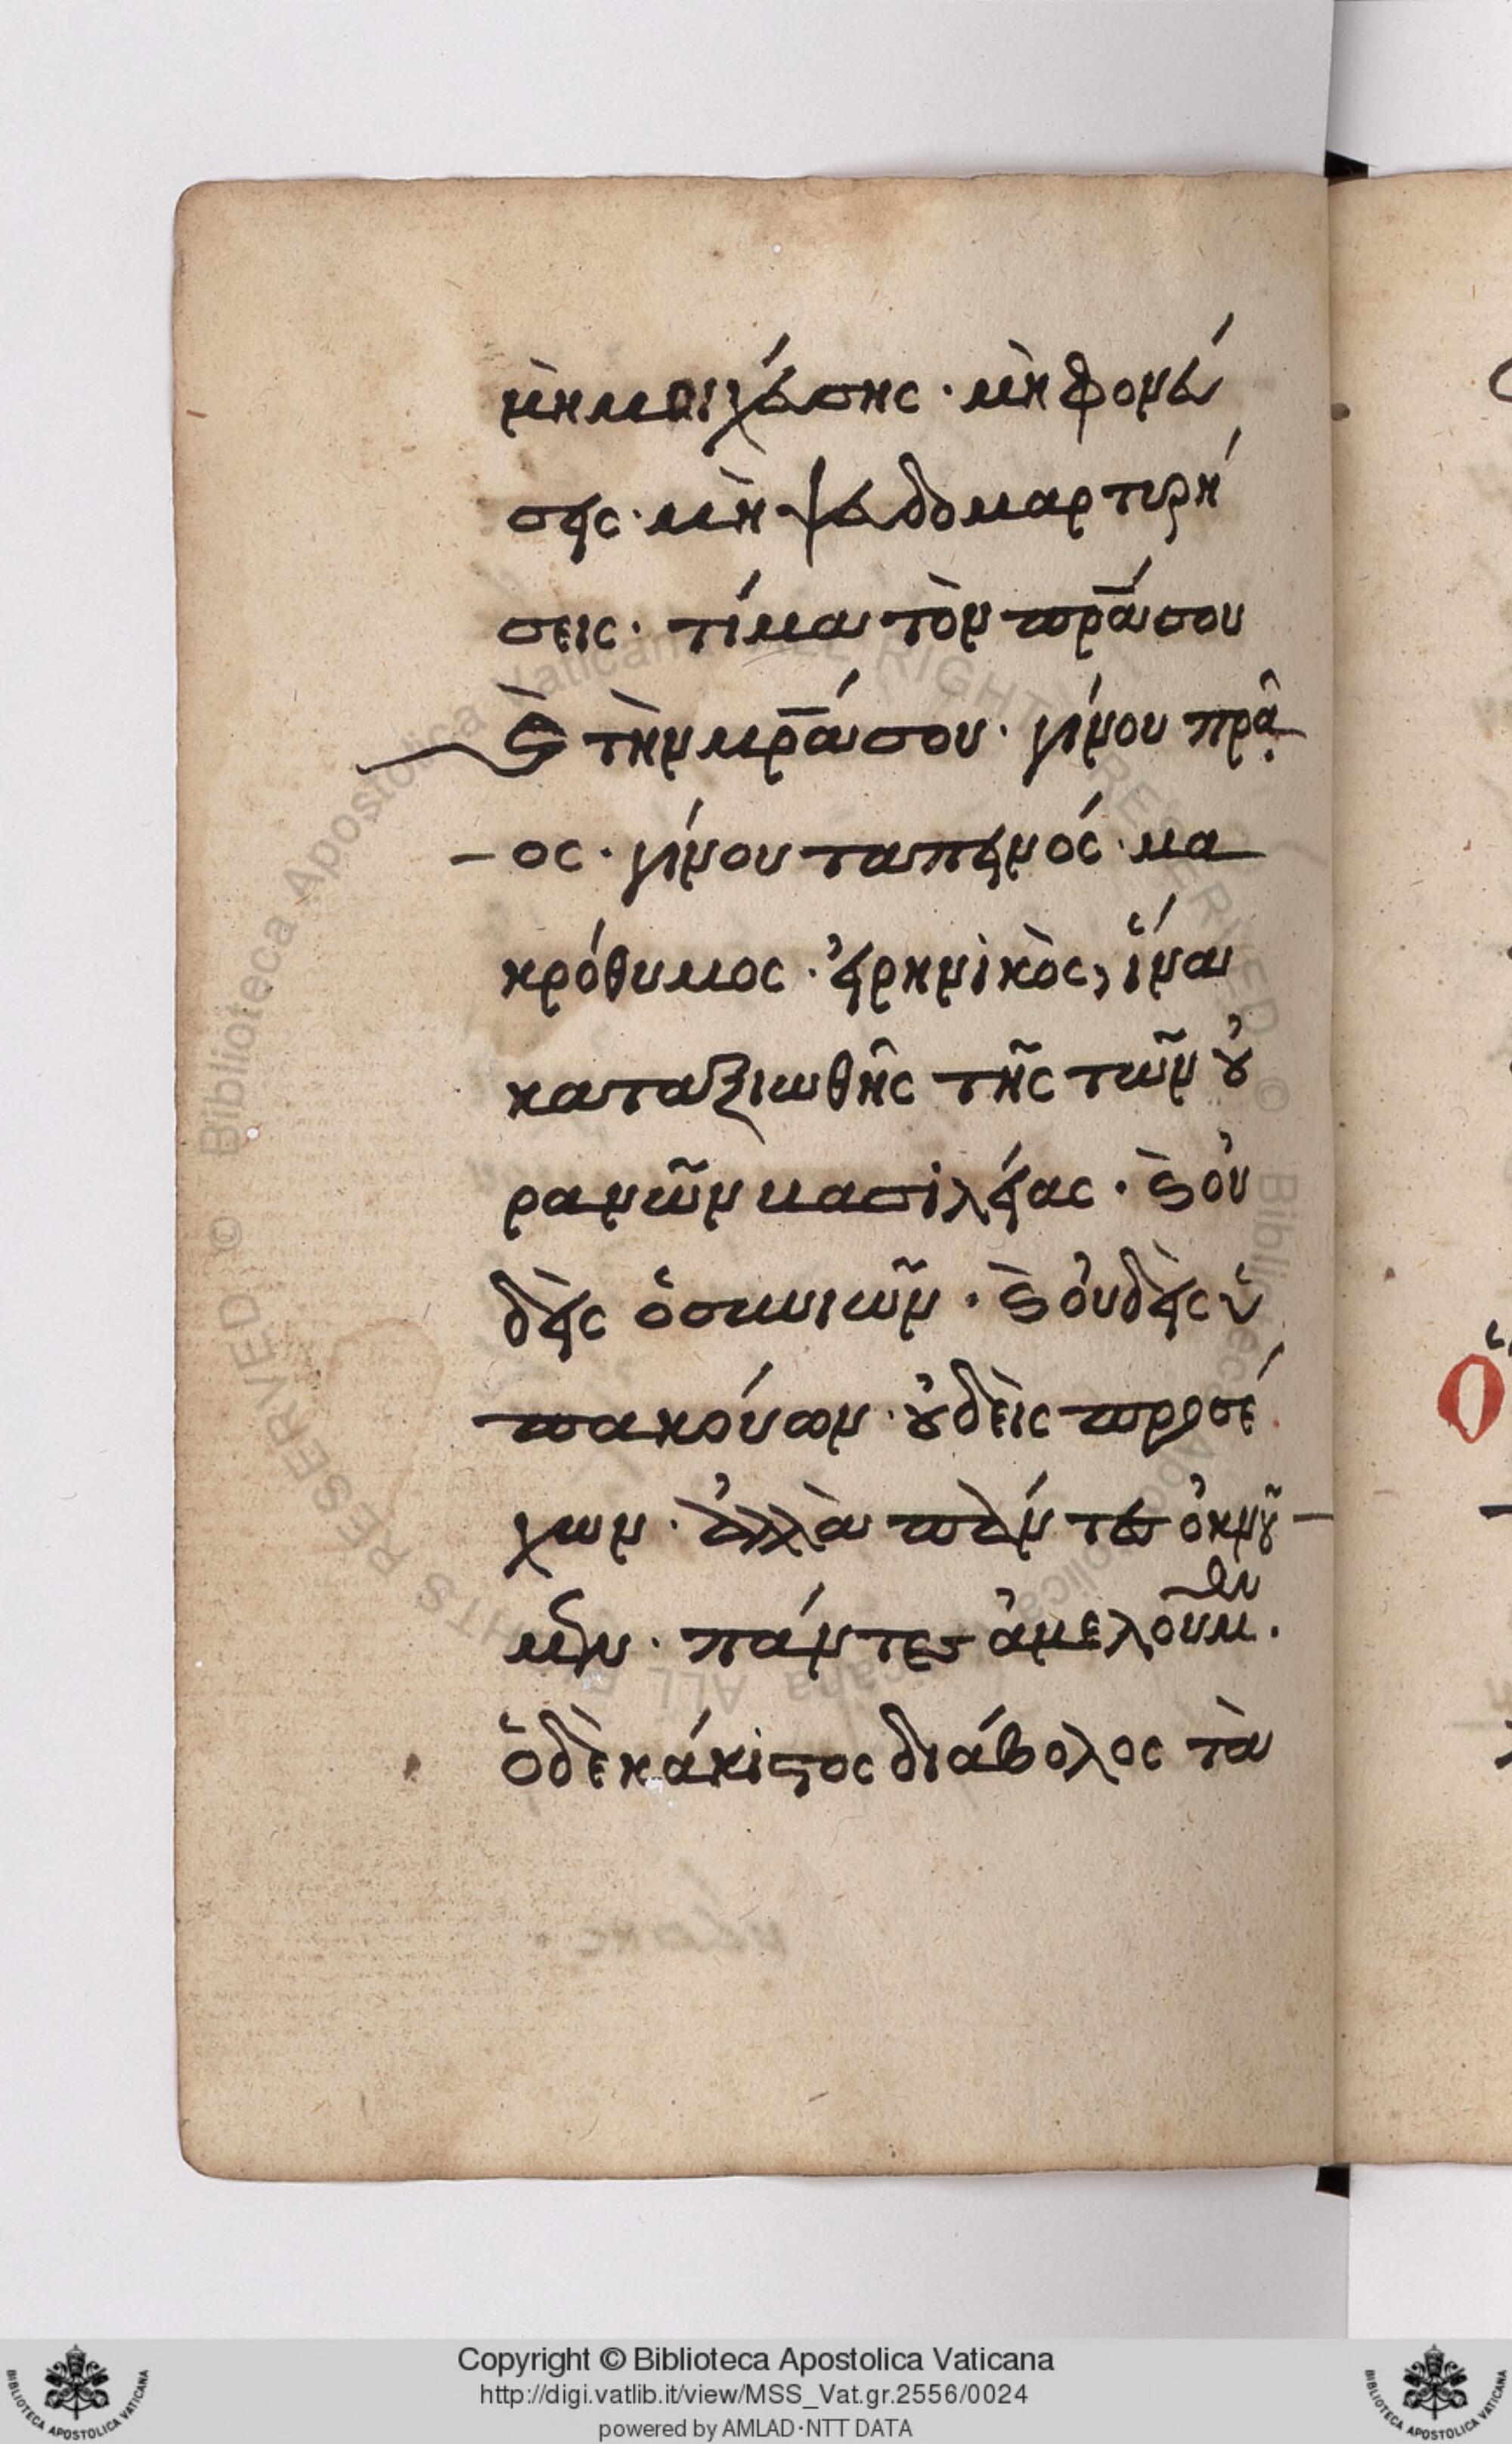 μὴ μοιχεύσης · μὴ φονεύ
σῃς · μὴ ψευδομαρτιρή
σεις · τίμα τὸν πρ̅ά σου
ϗ̀ τὴν μρ̅ά σου · γίνου πρᾶ
‒ ος · γίνου ταπεινός · μα
κρόθυμος · εἰρηνικὸς, ἵνα
καταξιωθῆς τῆς τῶν ȣ̓
ρανῶν βασιλείας · ϗ̀ οὐ
δεὶς ὁ σκυιῶν · ϗ̀ οὐδεὶς ὑ
πακούων · ȣ̓δεὶς προσέ
χων · ἀλλὰ πάντες ὀκνȣ͂ ‒
μεν · πάντες ἀμελοῦμεν.
ὁ δὲ κάκιστος διάβολος τὰ
Copyright © Biblioteca Apostolica Vaticana
http://digi.vatlib.it/view/MSS_Vat.gr.2556/0024
powered by AMLAD·NTT DATA